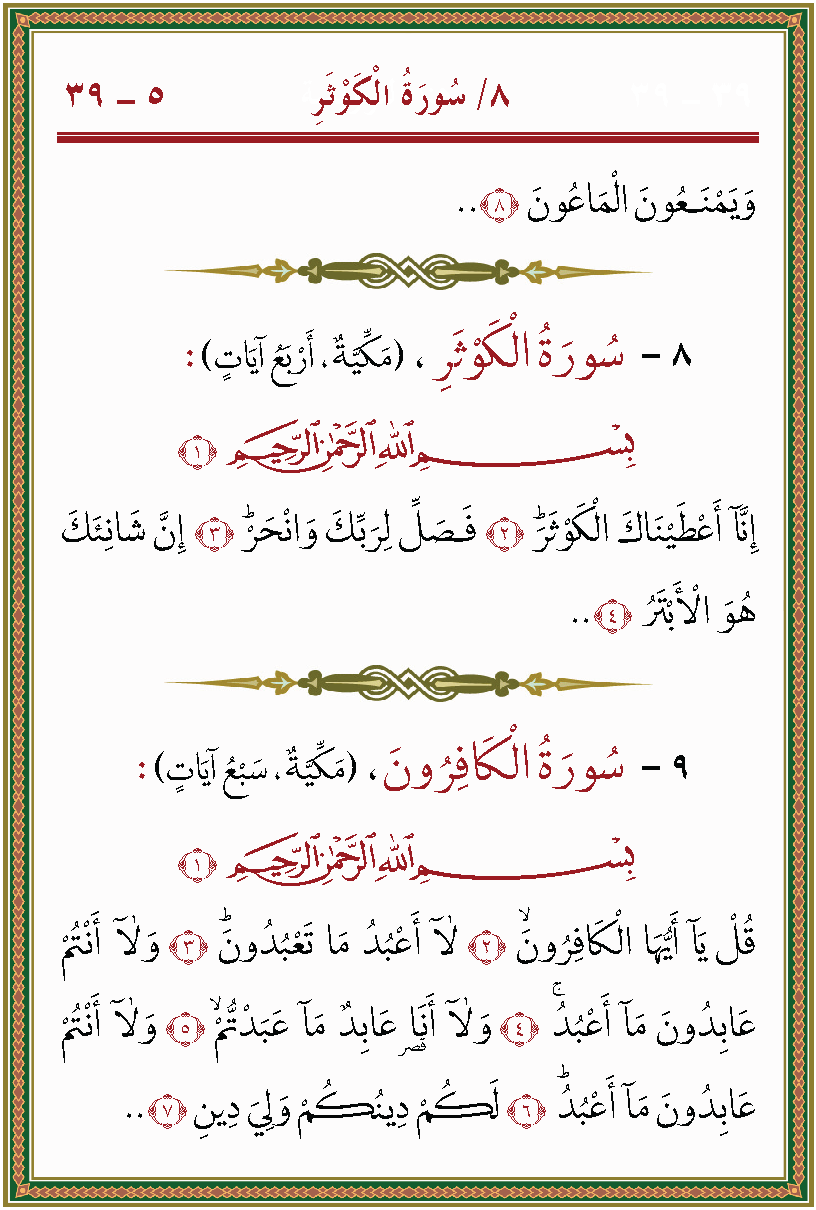 ٨/ سُورَةُ الْكَوْثَرِ ٥ – ٣٩
وَيَمْنَعُونَ الْمَاعُونَ ﴿٨﴾..
٨ – سُورَةُ الْكَوْثَرِ ، (مَكِّيَّةٌ، أَرْبَعُ آيَاتٍ) :
بِسْمِ اللهِ الرَّحْمٰنِ الرَّحِيمِ ﴿١﴾
إِنَّآ أَعْطَيْنَاكَ الْكَوْثَرَۜ ﴿٢﴾ فَصَلِّ لِرَبِّكَ وَانْحَرْۜ ﴿٣﴾ إِنَّ شَانِئَكَ
هُوَ الْأَبْتَرُ ﴿٤﴾..
٩ – سُورَةُ الْكَافِرُونَ ، (مَكِّيَّةٌ، سَبْعُ آيَاتٍ) :
بِسْمِ اللهِ الرَّحْمٰنِ الرَّحِيمِ ﴿١﴾
قُلْ يَآ أَيُّهَا الْكَافِرُونَۙ ﴿٢﴾ لَآ أَعْبُدُ مَا تَعْبُدُونَۜ ﴿٣﴾ وَلَآ أَنْتُمْ
عَابِدُونَ مَآ أَعْبُدُۚ ﴿٤﴾ وَلَآ أَنَا قصر عَابِدٌ مَآ عَبَدْتُّمْۙ ﴿٥﴾ وَلَآ أَنْتُمْ
عَابِدُونَ مَآ أَعْبُدُۜ ﴿٦﴾ لَكُمْ دِينُكُمْ وَلِيَ دِينِ ﴿٧﴾..